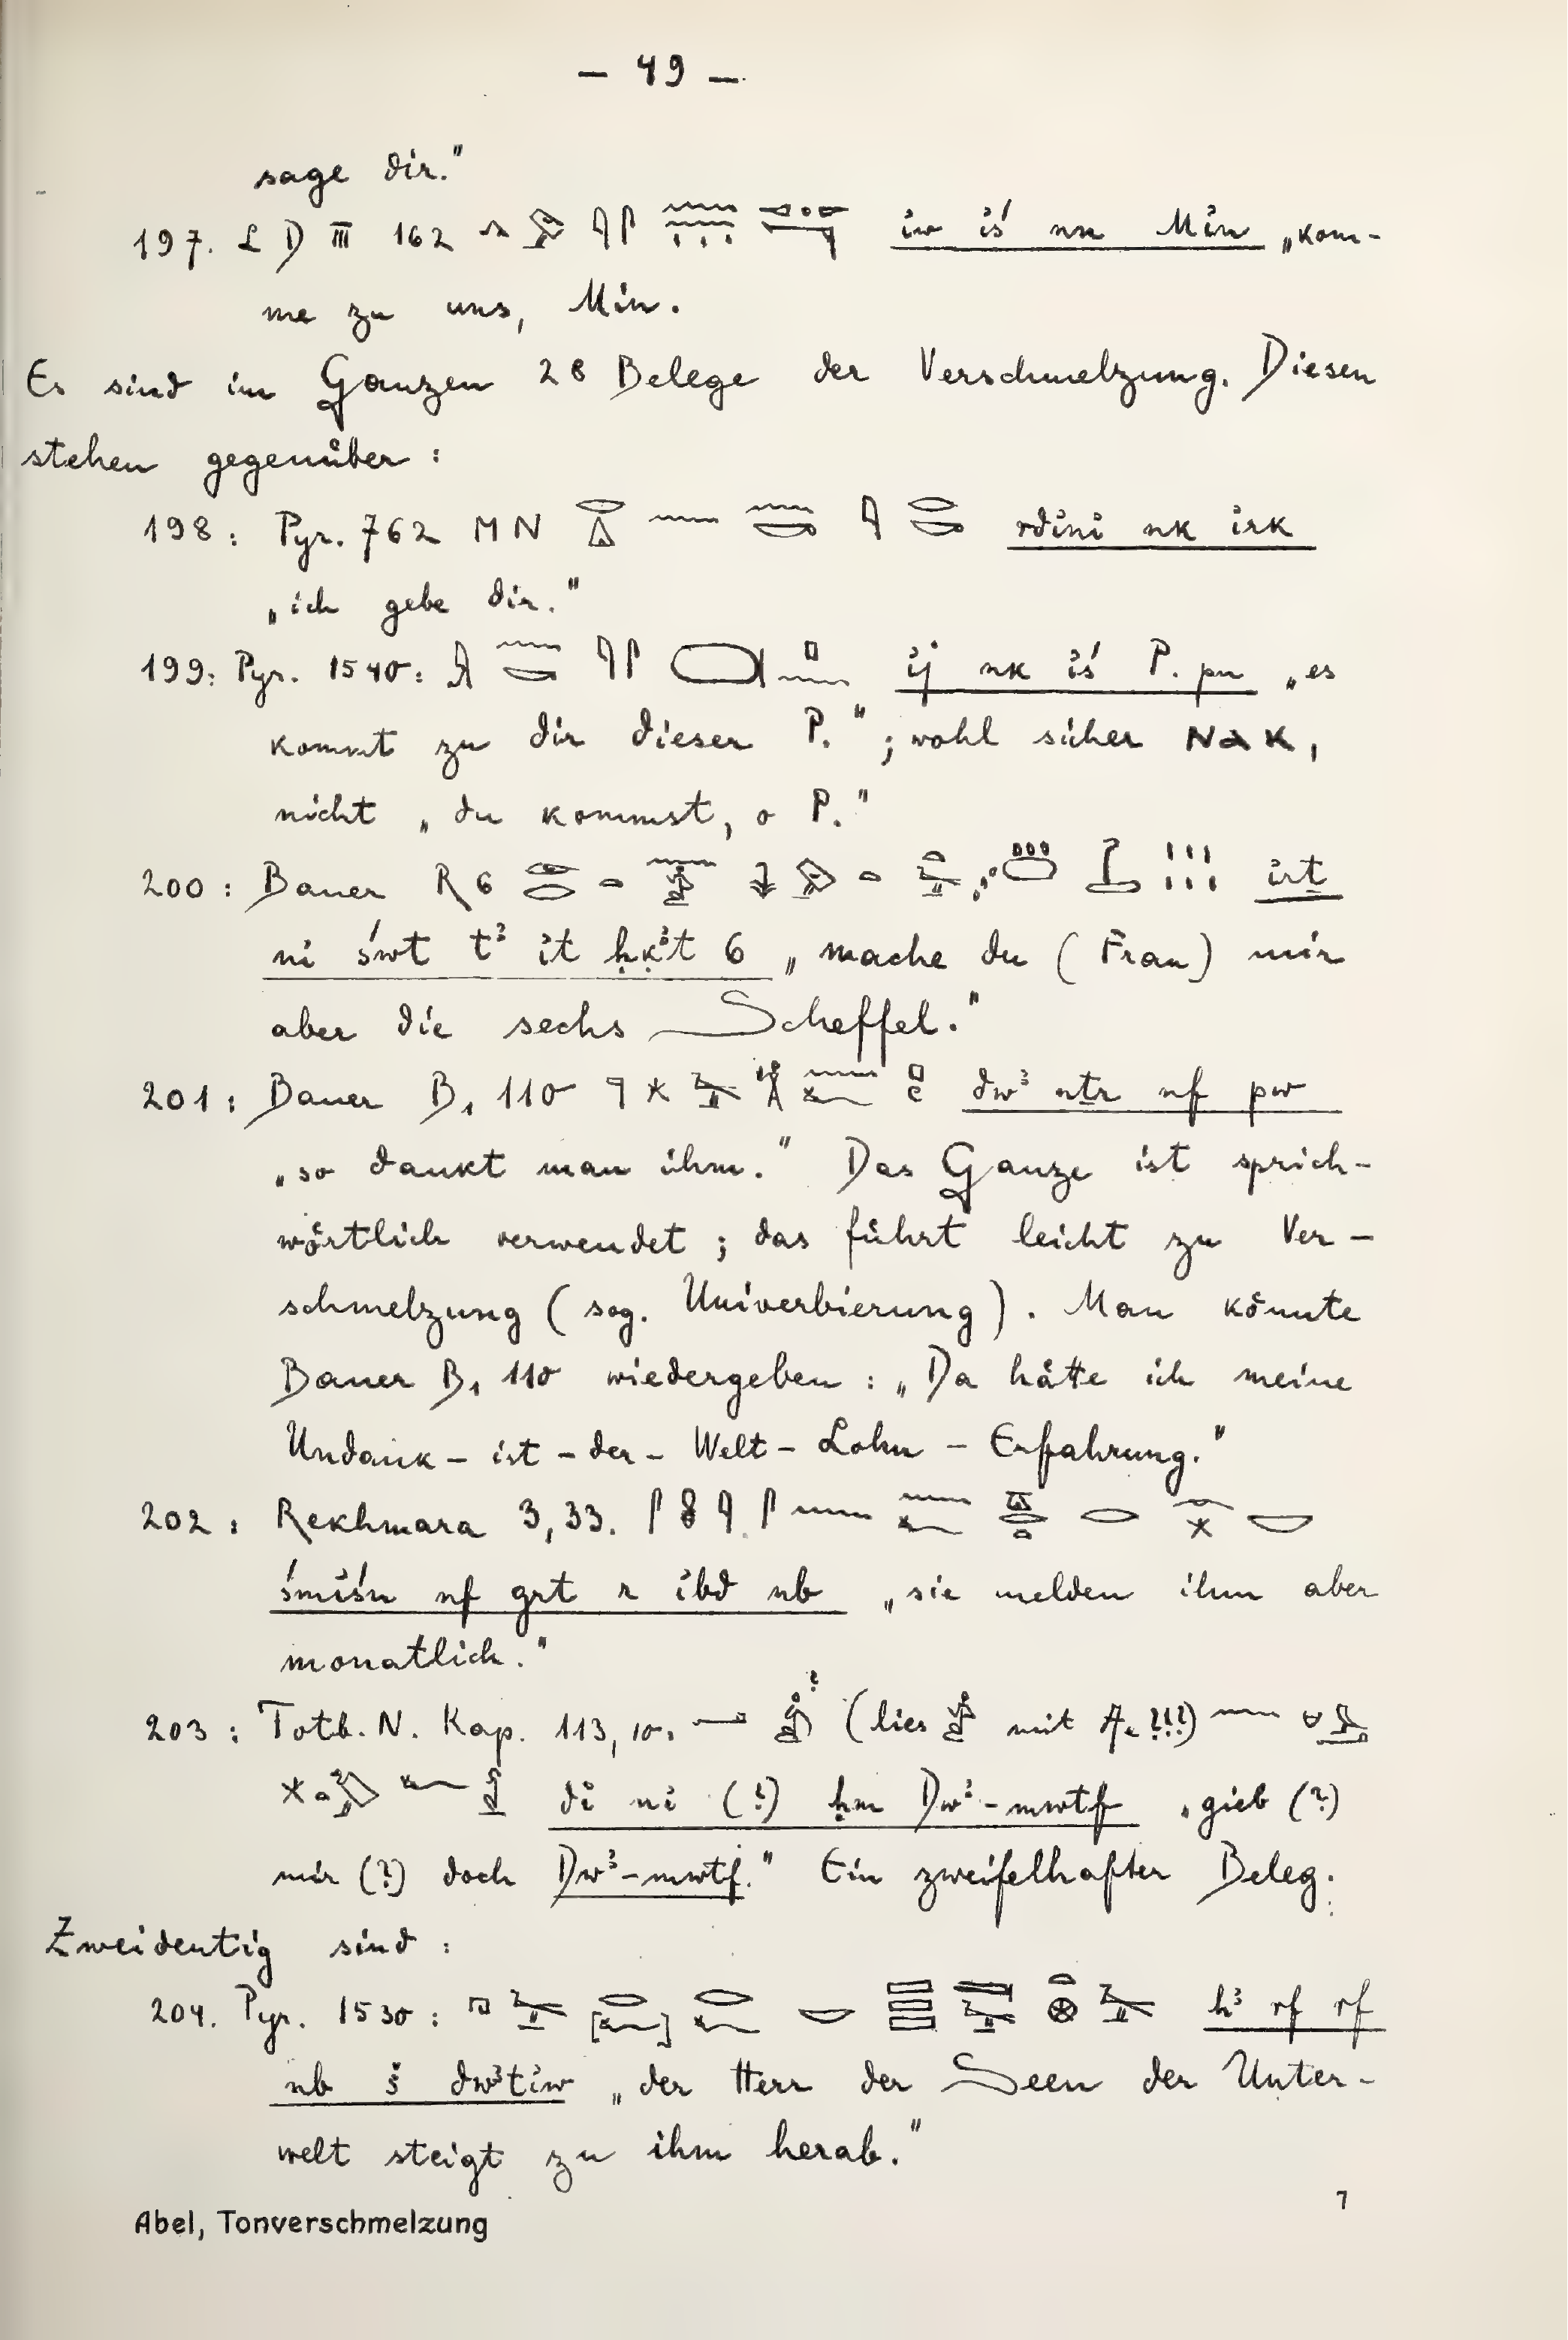 – 49 –
sage dir."
197. L D III 162 iw iś nn Min „kom-
me zu uns, Min.
Es sind im Ganzen 28 Belege der Verschmelzung. Diesen
stehen gegenüber :
198 : Pyr. 762 M N rdini nk irk
„ich gebe dir."
199: Pyr. 1540: ij nk iś P. pn „es
kommt zu dir dieser P." ; wohl sicher ⲚⲀⲔ,
nicht „du kommst, o P."
200 : Bauer R 6 irt
ni śwt tꜣ it ḥḳꜣt 6 „mache du (Frau) mir
aber die sechs Scheffel."
201 : Bauer B₁ 110 dwꜣ nṯr nf pw
„so dankt man ihm." Das Ganze ist sprich-
wörtlich verwendet ; das führt leicht zu Ver-
schmelzung (sog. Univerbierung). Man könnte
Bauer B₁ 110 wiedergeben : „Da hätte ich meine
Undank – ist – der – Welt – Lohn – Erfahrung."
202 : Rekhmara 3,33. śmiśn nf grt r ibd nb „sie melden ihm aber
monatlich."
203 : Totb. N. Kap. 113, 10. (lies mit
di ni (?) ḥm Dwꜣ-mwtf „gieb (?)
mir (?) doch Dwꜣ-mwtf." Ein zweifelhafter Beleg.
Zweideutig sind :
204. Pyr. 1530 : hꜣ rf rf
nb š dwꜣtiw „der Herr der Seen der Unter-
welt steigt zu ihm herab."
Abel, Tonverschmelzung 7